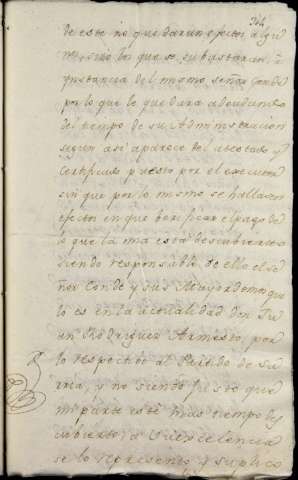 304
de este no quedaran efectos algu
nos, sino los que se subastaran, à
ynstancia del mismo señor Conde
por lo que le quedara adeudando
del tiempo de su Administracion
segun asi aparece del atestado, y
Certificado puesto por el executor
sin que por lo mismo se hallasen
efectos en que berificar el pago de
lo que la mia està descubierto
siendo responsable de ello el se
ñor Conde y su Mayordomo que
lo es en la actualidad Don Ju
an Rodriguez Armesto, por
lo respectibo al Partido de Su
rria, y no siendo justo que
mi parte estè mas tiempo des
cubierto, à Vuexcelencia
se lo represento, y suplico